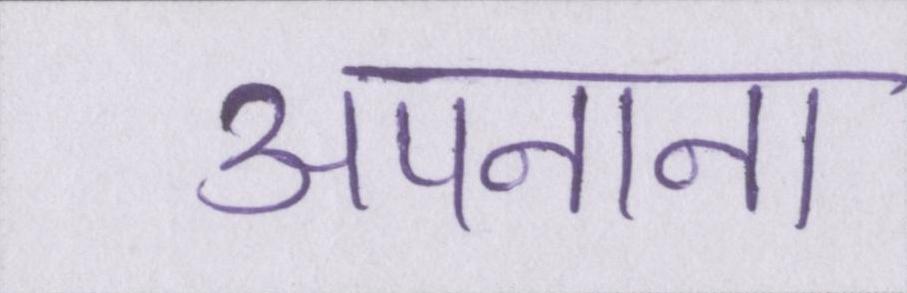 अपनाना